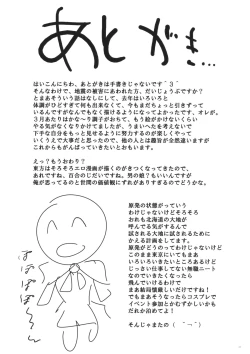 あとがき…
はいこんにちわ、あとがきは手書きじゃないです｀３´
そんなわけで、地震の被害にあわれた方、だいじょうぶですか？
とまあそういう話はなしにして、去年はいろいろと
体調がひどすぎて何も出来なくて、今もまだちょっと引きずって
いるんですがなんでもなく描けるようになってよかったです、オレが。
３月あたりはかな～り調子がおちて、もう絵がかけないくらい
やる気がなくなりかけてましたが、うまいへたを考えないで
下手な自分をもっと見せるように努力するのが楽しくやって
いくうえで大事だと思ったので、他の人とは趣旨が全然違いますが
これからもがんばっていきたいとおもいます。
えっ？もうおわり？
東方は好きだけどそろそろエロ漫画が描くのがきつくなってきたので、
あれですね、百合のじだいですね。男の娘？もいいんですが
俺の思ってるのと世間の価値観にずれがありすぎるのでどうかな。
原発の状態がっていう
わけじゃないけどそろそろ
おれも北海道の大地が
呼んでる気がするんで
試される大地に試されるために
かえる計画をしてます。
原発がどうのってわけじゃないけど
このまま東京にいてもまあ
いろいろきたいところあるけど
じっさい仕事してない無職ニート
なのでいきたくなったら
飛んでいけるわけで
まあ結局慎重しだいですけどね～
でもまあそうなったらコスプレで
イベント参加とかむずかしいから
だれか泊めてよ！
そんじゃまたの（　｀ー´）
ぽぽぽぽ～ん